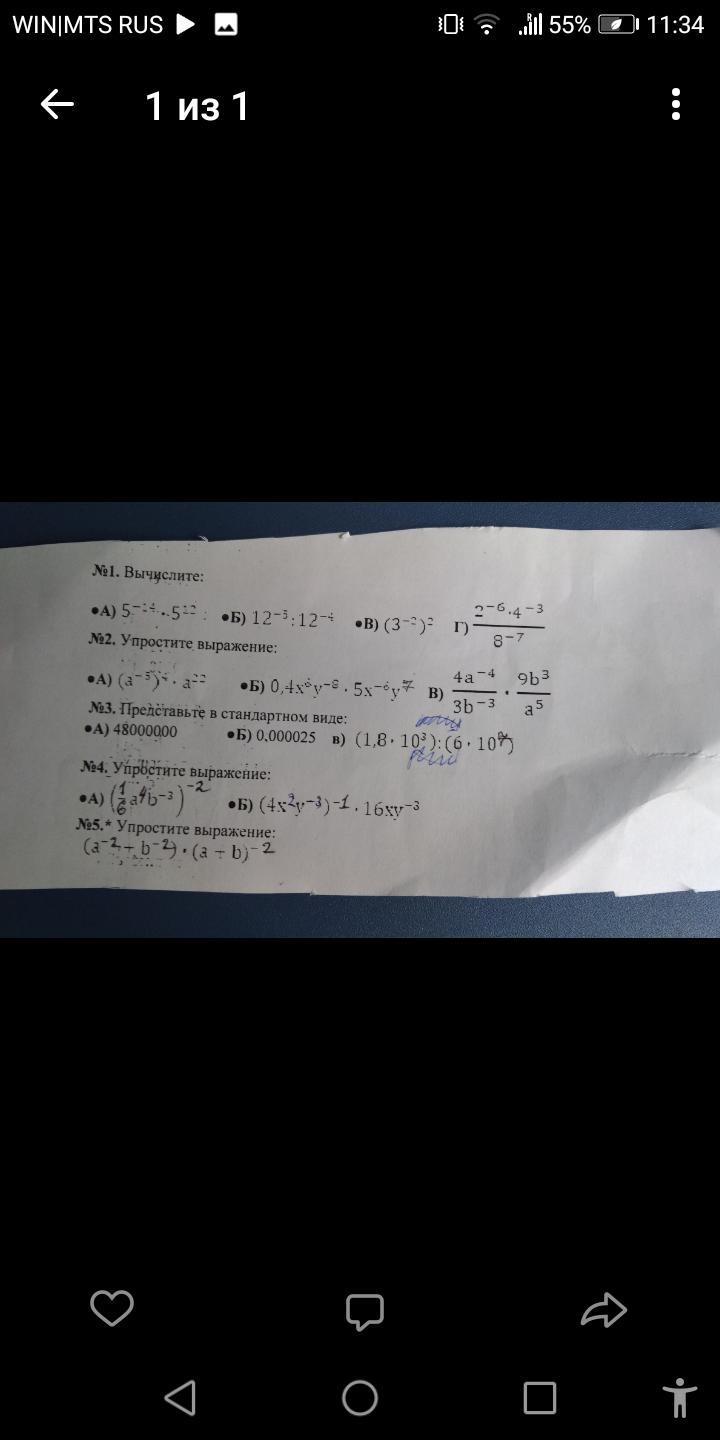 WIN|MTS RUS 55% 11:34
1 из 1
№1. Вычислите:
•А) •Б) •В) (3⁻²)² Г) 2⁻⁶·4⁻³ / 8⁻⁷
№2. Упростите выражение:
•А) •Б) В) 4a⁻⁴ / 3b⁻³ · 9b³ / a⁵
№3. Представьте в стандартном виде:
•А) 48000000 •Б) 0,000025 в) (1,8 · 10³):(6 ·
№4. Упростите выражение:
•А) (1/6 a⁴b⁻³)⁻² •Б) (4x²y⁻³)⁻¹ · 16xy⁻³
№5.* Упростите выражение:
(a⁻² + b⁻²) · (a + b)⁻²